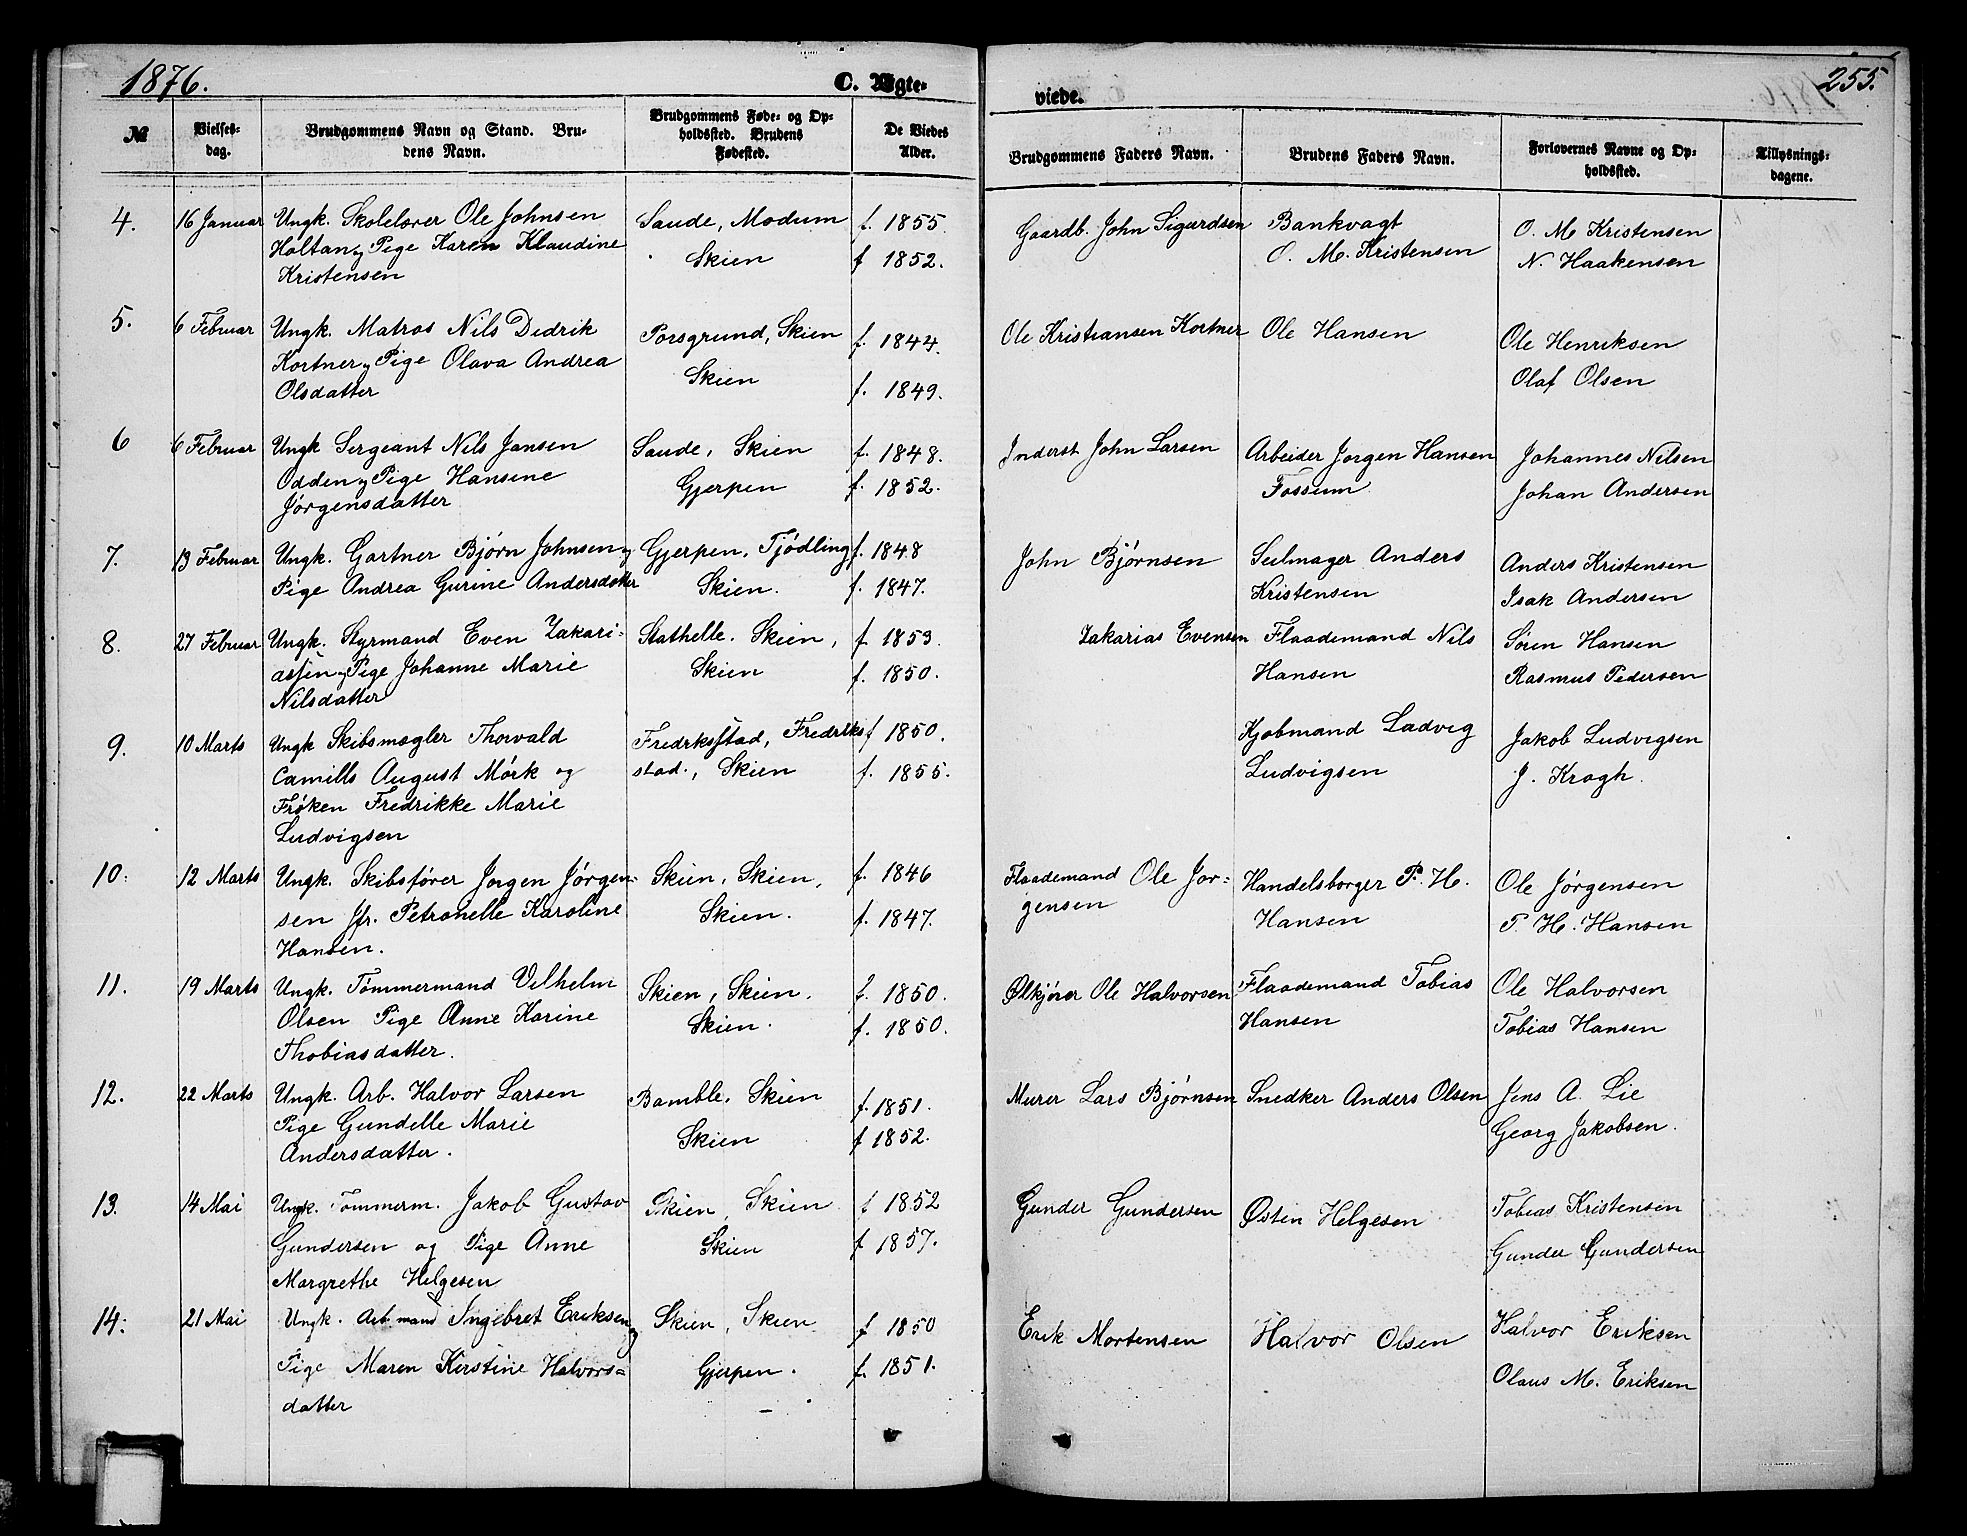 1876.
C. Ægte-
viede.
255.
№
Vielses-
dag.
Brudgommens Navn og Stand. Bru-
dens Navn.
Brudgommens Føde- og Op-
holdssted. Brudens
Fødested.
De Viedes
Alder.
Brudgommens Faders Navn.
Brudens Faders Navn.
Forlovernes Navne og Op-
holdssted.
Tillysnings-
dagene.
4.
16 Januar
Ungk. Skolelærer Ole Johnsen
Holtan og Pige Karen Klaudine
Kristensen
Saude, Modum
Skien
f. 1855.
f 1852.
Gaardb. John Sigurdsen
Bankvagt
O. M. Kristensen
O. M Kristensen
N. Haakensen
5.
6 Februar
Ungk. Matros Nils Didrik
Kortner og Pige Olava Andrea
Olsdatter
Porsgrund, Skien
Skien
f. 1844.
f. 1849.
Ole Kristiansen Kortner
Ole Hansen
Ole Henriksen
Olaf Olsen
6
6 Februar
Ungk Sergeant Nils Jansen
Odden og Pige Hansine
Jørgensdatter
Saude, Skien
Gjerpen
f. 1848.
f. 1852.
Inderst John Larsen
Arbeider Jørgen Hansen
Fossum
Johannes Nilsen
Johan Andersen
7.
13 Februar
Ungk. Gartner Bjørn Johnsen og
Pige Andrea Gurine Andersdatter
Gjerpen, Tjødling
Skien.
f. 1848
f. 1847.
John Bjørnsen
Seilmager Anders
Kristensen
Anders Kristensen
Isak Andersen
8.
27 Februar
Ungk. Styrmand Even Zakari-
assen og Pige Johanne Marie
Nilsdatter
Stathelle. Skien,
Skien
f. 1853.
f. 1850.
Zakarias Evensen
Flaademand Nils
Hansen
Søren Hansen
Rasmus Pedersen
9.
10 Marts
Ungk Skibsmægler Thorvald
Camills August Mørk og
Frøken Fredrikke Marie
Ludvigsen
Fredrksstad, Fredriks
stad., Skien
f 1850.
f. 1855.
Kjøbmand Ludvig
Ludvigsen
Jakob Ludvigsen
J. Kragh.
10.
12 Marts
Ungk. Skibsfører Jørgen Jørgen-
sen Jfr. Petronelle Karoline
Hansen.
Skien, Skien,
Skien.
f. 1846
f. 1847.
Flaademand Ole Jør-
gensen
Handelsborger P. H.
Hansen
Ole Jørgensen
P. H. Hansen
11.
19 Marts
Ungk. Tømmermand Vilhelm
Olsen Pige Anne Karine
Thobiasdatter.
Skien, Skien.
Skien.
f. 1850.
f. 1850.
Ølkjører Ole Halvorsen
Flaademand Tobias
Hansen
Ole Halvorsen
Tobias Hansen
12.
22 Marts
Ungk. Arb. Halvor Larsen
Pige Gundelle Marie
Andersdatter.
Bamble, Skien
Skien
f. 1851.
f 1852.
Murer Lars Bjørnsen
Snedker Anders Olsen
Jens A. Lie
Georg Jakobsen.
13.
14 Mai
Ungk. Tømmerm. Jakob Gustav
Gundersen og Pige Anne
Margrethe Helgesen
Skien, Skien
Skien
f 1852
f 1857.
Gunder Gundersen
Østen Helgesen
Tobias Kristensen
Gunder Gundersen
14.
21 Mai
Ungk. Arb.mand Ingebret Eriksen og
Pige Maren Kirstine Halvors=
datter
Skien, Skien
Gjerpen.
f 1850
f. 1851.
Erik Mortensen
Halvor Olsen
Halvor Eriksen
Olaus M. Eriksen